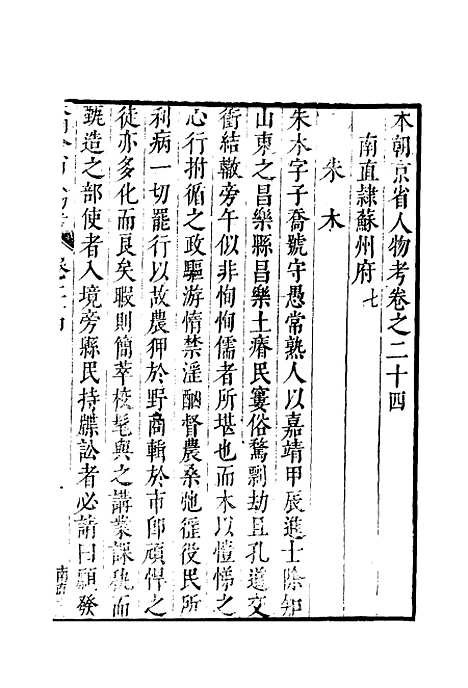 本朝京省人物考卷之二十四
南直隸蘇州府七
朱木
朱木字子喬號守愚常熟人以嘉靖甲辰進士除知
山東之昌樂縣昌樂土瘠民窶俗騖剽劫且孔道交
衝結轍旁午似非恂恂儒者所堪也而木以愷悌之
心行拊循之政驅游惰禁淫酗督農桑弛徭役民所
利病一切罷行以故農狎於野商輯於市卽頑悍之
徒亦多化而良矣暇則簡萃校髦與之講業課秇而
甄造之部使者入境旁縣民持牒訟者必請曰願發